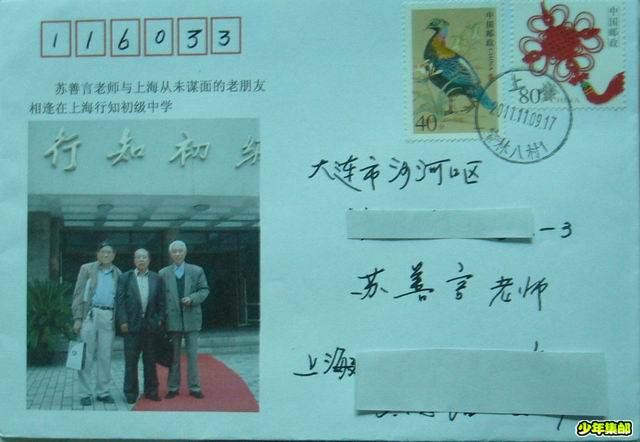 116033
苏善言老师与上海从未谋面的老朋友
相逢在上海行知初级中学
行知初级
中国邮政
40分
中国邮政
80分
CHINA
上海
2011.11.09.17
林八村
大连市沙河口区
-3
苏善言老师
上海
少年集邮